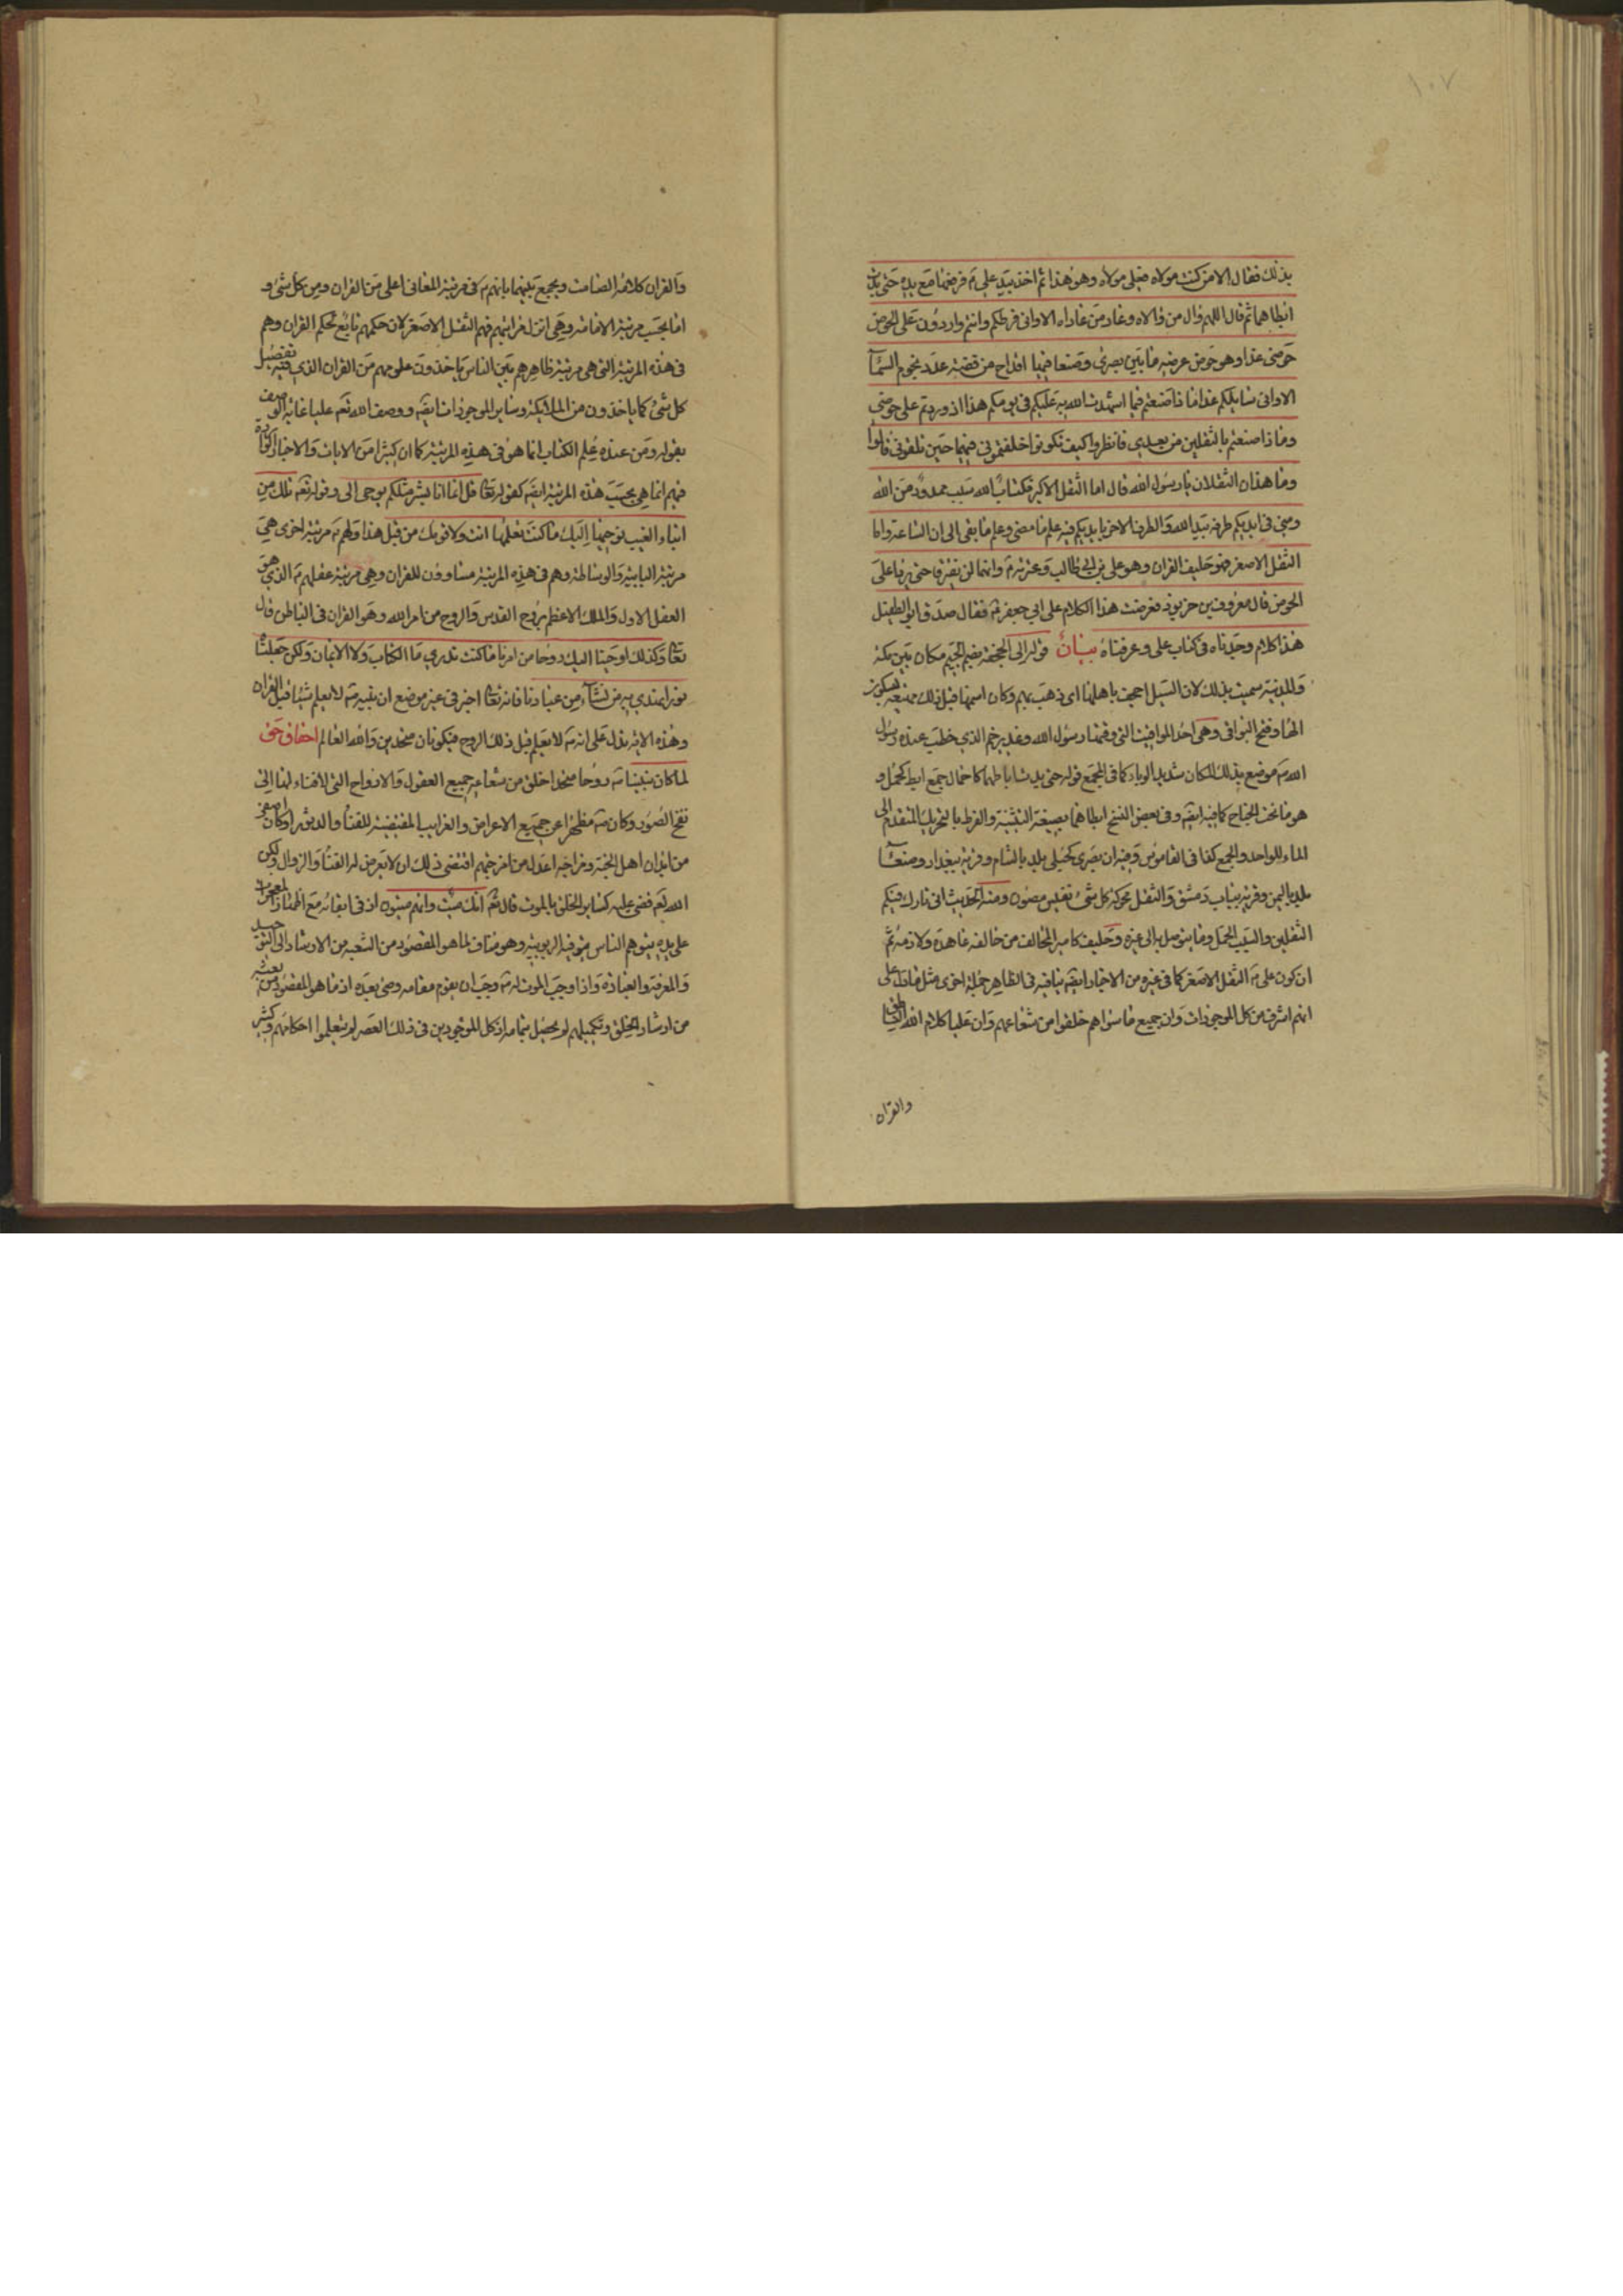 ١٠٧
بذلك فقال الا من كنت مولاه فعلى مولاه وهو هذا ثم اخذ بيد على ع فرفعها مع يده حتى بدت
ابطاهما ثم قال اللهم وال من والاه وعاد من عاداه الا وانى فرطكم وانتم واردون على الحوض
حوضى غدا وهو حوض عرضه ما بين بصرى وصنعا فيها اقداح من فضة عدد نجوم السمآ
الا وانى سايلكم غدا ماذا صنعتم فيما اشهدت الله به عليكم فى يومكم هذا اذ وردتم على حوضى
وماذا صنعتم بالثقلين من بعدى فانظروا كيف تكونوا خلفتمونى فيهما حين تلقونى قالوا
وما هذان الثقلان يا رسول الله قال اما الثقل الاكبر فكتاب الله سبب ممدود من الله
ومنى فى ايديكم طرفه بيد الله والطرف الاخر بايديكم فيه علم ما مضى وعلم ما بقى الى ان الساعة واما
الثقل الاصغر فهو حليف القران وهو على بن ابى طالب وعترته ع وانهما لن يفترقا حتى يردا على
الحوض قال معروف بن خربوذ فعرضت هذا الكلام على ابى جعفر ع فقال صدق ابو الطفيل
هذا كلام وجدناه فى كتاب على وعرفناه بيان قوله الى الجحفة بضم الجيم مكان بين مكة
والمدينة سميت بذلك لان السيل اجحف باهلها اى ذهب بهم وكان اسمها قبل ذلك مهيعه بسكون
الهاء وفتح البواقى وهى احد المواقيت التى وقتها رسول الله وغدير خم الذى خطب عنده رسول
الله ص موضع بذلك المكان شديد الوباء كما فى المجمع قوله حتى بدت اباطهما كاحمال جمع ابط كحمل و
هو ما تحت الجناح كما فيه ايضا وفى بعض النسخ ابطاهما بصيغة التثنية والفرط بالتحريك المتقدم الى
الماء للواحد والجمع كذا فى القاموس وفيه ان بصرى كحبلى بلد بالشام وقرية ببغداد وصنعآ
بلد باليمن وقرية بباب دمشق والثقل محركه كل شئ نفيس مصون ومنه الحديث انى تارك فيكم
الثقلين والسبب الحبل وما يتوصل به الى غيره وحليف كامير المحالف من حالفه عاهده ولازمه ثم
ان كون على ع الثقل الاصغر كما فى غيره من الاخبار ايضا ينافيه فى الظاهر جملة اخرى مثل ما دل على
انهم اشرف من كل الموجودات وان جميع ما سواهم خلقوا من شعاعهم وان عليا كلام الله الناطق
والقران
والقران كلامه الصامت ويجمع بينهما بانهم ع فى مرتبة المعانى اعلى من القران ومن كل شئ و
اما بحسب مرتبة الامامة وهى انزل مراتبهم فهم الثقل الاصغر لان حكمهم تابع لحكم القران وهم
فى هذه المرتبة التى هى مرتبة ظاهرهم بين الناس ياخذون علومهم من القران الذى فيه تفصيل
كل شئ كما ياخذون من الملايكة وساير الموجودات ايضا ووصف الله تعه عليا غاية الوصف
بقوله ومن عنده علم الكتاب انما هو فى هذه المرتبة كما ان كثيرا من الايات والاخبار الواردة
فيهم انما هى بحسب هذه المرتبة ايضا كقوله تعا قل انما انا بشر مثلكم يوحى الى وقوله تعه تلك من
انباء الغيب نوحيها اليك ما كنت تعلمها انت ولا قومك من قبل هذا ولهم ع مرتبة اخرى هى
مرتبة البابية والوساطة وهم فى هذه المرتبة مساوون للقران وهى مرتبة عقلهم ع الذى هو
العقل الاول والملك الاعظم وروح القدس والروح من امر الله وهو القران فى الباطن قال
تعا وكذلك اوحينا اليك روحا من امرنا ما كنت تدرى ما الكتاب ولا الايمان ولكن جعلناه
نورا نهدى به من نشآء من عبادنا فانه تعا اخبر فى غير موضع ان نبيه ص لا يعلم شيئا قبل القران
وهذه الاية تدل على انه ص لا يعلم قبل ذلك الروح فيكونان متحدين والله العالم احقاق حق
لما كان نبينا ص روحا متجدا خلق من شعاعه جميع العقول والارواح التى لا فناء لها الى
نفخ الصور وكان ص مطهرا عن جميع الاعراض والغرايب المقتضية للفنآ والدثور اوكان اصفى
من ابدان اهل الجنة ومزاجه اعدل من امزجتهم اقتضى ذلك ان لا يعرض له الفنآ والزوال ولكن
الله تعه قضى عليه كساير الخلق بالموت قال تعه انك ميت وانهم ميتون اذ فى ابقائه مع اظهار المعجزات
على يده يتوهم الناس فيه الربوبية وهو مناف لما هو المقصود من البعثه من الارشاد الى التوحيد
والمعرفة والعبادة واذا وجب الموت له ص وجب ان يقوم مقامه وصى بعده اذ ما هو المقصود من بعثته
من ارشاد الخلق وتكميلهم لم يحصل بتمامه اذ كل الموجودين فى ذلك العصر لم يتعلموا احكامهم وكثير